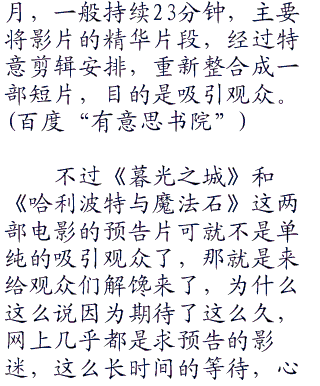 月，一般持续23分钟，主要
将影片的精华片段，经过特
意剪辑安排，重新整合成一
部短片，目的是吸引观众。
(百度“有意思书院”)
不过《暮光之城》和
《哈利波特与魔法石》这两
部电影的预告片可就不是单
纯的吸引观众了，那就是来
给观众们解馋来了，为什么
这么说因为期待了这么久，
网上几乎都是求预告的影
迷，这么长时间的等待，心